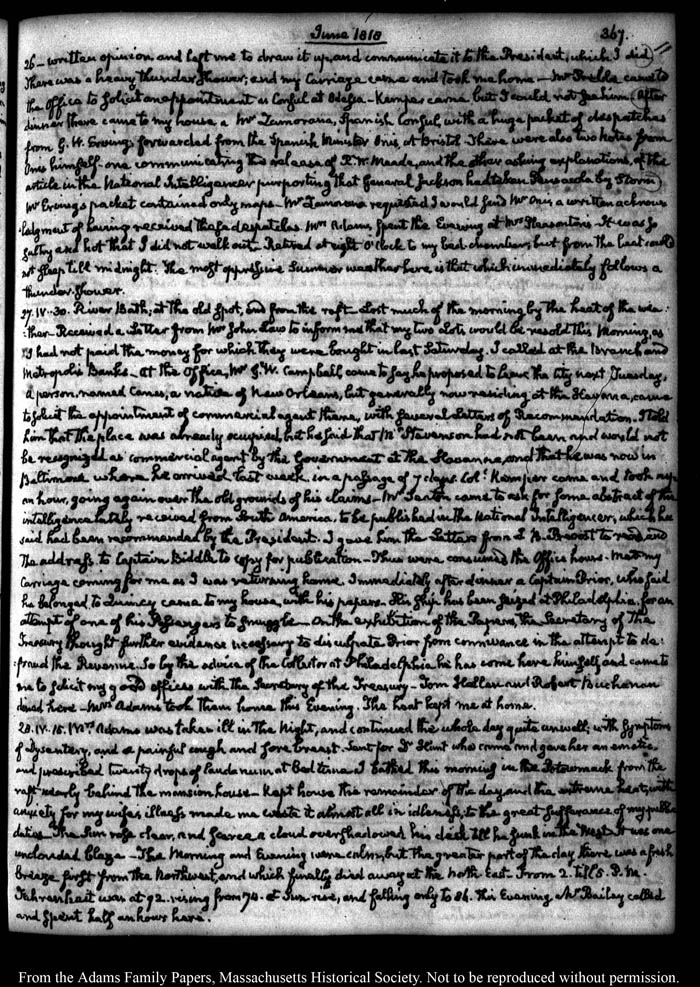 June 1818
367.
26 - written opinion and left me to draw it up, and communicate it to the President, which I did
There was a heavy thunder shower; and my Carriage came and took me home - Mr Treble came to
the office to solicit an appointment as Consul at Odessa - Kemper came but I could not see him. After
dinner there came to my house, a Mr Zamorana, Spanish Consul, with a huge packet of despatches
from G. W. Erving, forwarded from the Spanish Minister Onis, at Bristol. There were also two Notes from
Onis himself - one communicating the release of R. W. Meade, and the other asking explanations, of the
article in the National Intelligencer purporting that General Jackson had taken Pensacola by Storm
Mr Erving's packet contained only maps - Mr Zamorana requested I would send Mr Onis, a written acknow-
-ledgment of having received these despatches. Mrs Adams, spent the Evening at Mrs Pleasanton's. It was so
sultry and hot that I did not walk out. Retired at eight O'Clock to my bed chamber; but from the heat could
not sleep till midnight. The most oppressive Summer weather here is that which immediately follows a
thunder-shower.
27. IV. 30. River Bath; at the old spot, and from the raft - Lost much of the morning by the heat of the wea-
-ther - Received a Letter from Mr John Law to inform me that my two Lots would be resold this Morning, as
I had not paid the money for which they were bought in last Saturday. I called at the Branch and
Metropolis Banks - At the Office, Mr G. W. Campbell, came to say he proposed to leave the City next Tuesday,
A person, named Cenas, a native of New Orleans, but generally now residing at the Havanna, came
to solicit the appointment of commercial agent there, with several Letters of Recommendation. I told
him that the place was already occupied, but he said that Mr Stevenson had not been and would not
be recognized as commercial agent by the Government at the Havanna, and that he was now in
Baltimore where he arrived last week in a passage of 7 days. Coll. Kemper came and took up
an hour, going again over the old grounds of his claims - Mr Seaton came to ask for some abstract of the
intelligence lately received from South America, to be published in the National Intelligencer, which he
said had been recommended by the President. I gave him the Letters from J. B. Prevost to read and
The address, to Captain Biddle to copy for publication - Thus were consumed the Office hours. Met my
Carriage coming for me as I was returning home. Immediately after dinner a Captain Prior, who said
he belonged to Quincy came to my house, with his papers. His Ship has been seized at Philadelphia, for an
attempt of one of his Passengers to smuggle - On the exhibition of the Papers, the Secretary of the
Treasury thought further evidence necessary to disculpate Prior from connivance in the attempt to de-
-fraud the Revenue. So by the advice of the Collector at Philadelphia he has come here himself and came to
me to solicit my good offices with the Secretary of the Treasury - Tom Hellen and Robert Buchanan
dined here - Mrs Adams took them home this Evening. The heat kept me at home.
28. IV. 15. Mrs Adams was taken ill in the Night, and continued the whole day quite unwell; with Symptoms
of Dysentery, and a painful cough and sore breast. Sent for Dr Hunt who came and gave her an emetic,
and prescribed twenty drops of laudanum at bed time. I bathed this morning in the Potowmack from the
raft nearly behind the mansion house - Kept house the remainder of the day and the extreme heat, with
anxiety for my wife's illness made me waste it almost all in idleness, to the great sufferance of my public
duties - The Sun rose clear, and scarce a cloud overshadowed his disk till he sunk in the West. It was one
unclouded blaze - The Morning and Evening were calm, but the greater part of the day there was a fresh
breeze first from the Northwest, and which finally died away at the North East. From 2. till 5. P.M.
Fahrenheit was at 92. rising from 74. at Sun rise, and falling only to 86. this Evening. Mr Bailey called
and spent half an hour here.
From the Adams Family Papers, Massachusetts Historical Society. Not to be reproduced without permission.